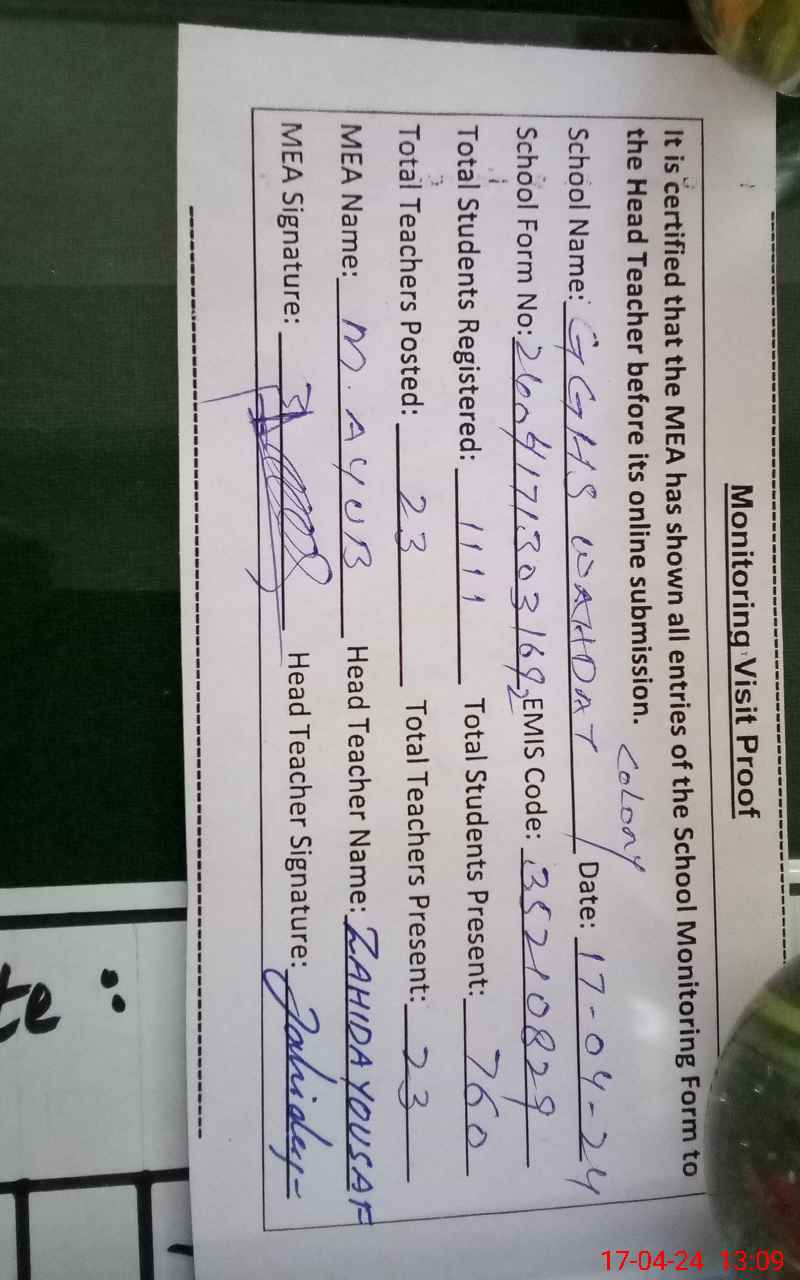 Monitoring Visit Proof
It is certified that the MEA has shown all entries of the School Monitoring Form to
the Head Teacher before its online submission.
School Name: GGHS WAHDAT Colony Date: 17-04-24
School Form No: 26041713031692 EMIS Code: 35210829
Total Students Registered: 1111 Total Students Present: 760
Total Teachers Posted: 23 Total Teachers Present: 23
MEA Name: M. AYUB Head Teacher Name: ZAHIDA YOUSAF
MEA Signature: Head Teacher Signature:
te :
17-04-24 13:09